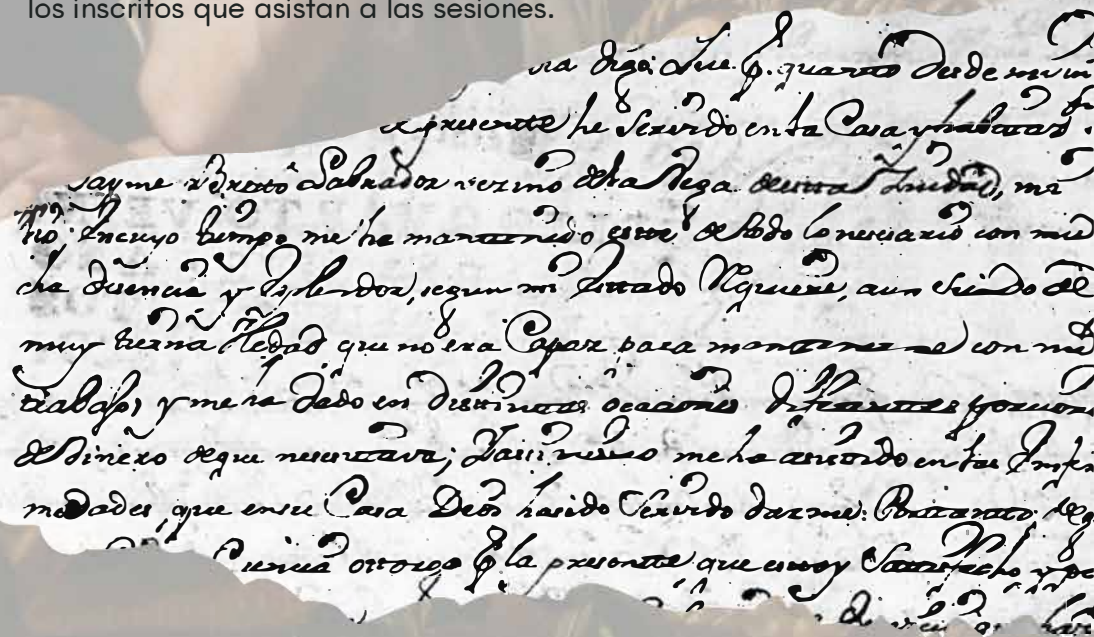 los inscritos que asistan a las sesiones.
ria digo: Que p. quanto desde mi in
presente he Servido en la Casa y
Jayme Labrador vezino de la Vega de esta Ciudad, mi
tio; En cuyo tiempo me ha mantenido este de todo lo nesesario con mu
cha desencia y Esplendor, segun mi Estado Requiere, aun siendo de
muy tierna Hedad que no era Capaz para mantenerme con mi
trabajo, y me ha dado en distintas ocaciones diferentes porcion
de dinero de que nesesitava; Y assi mesmo me ha asistido en las Enfer
medades, que en su Casa Dios ha sido Servido darme: Por tanto de
Ciencia otorgo P. la presente que estoy Satisfecho y